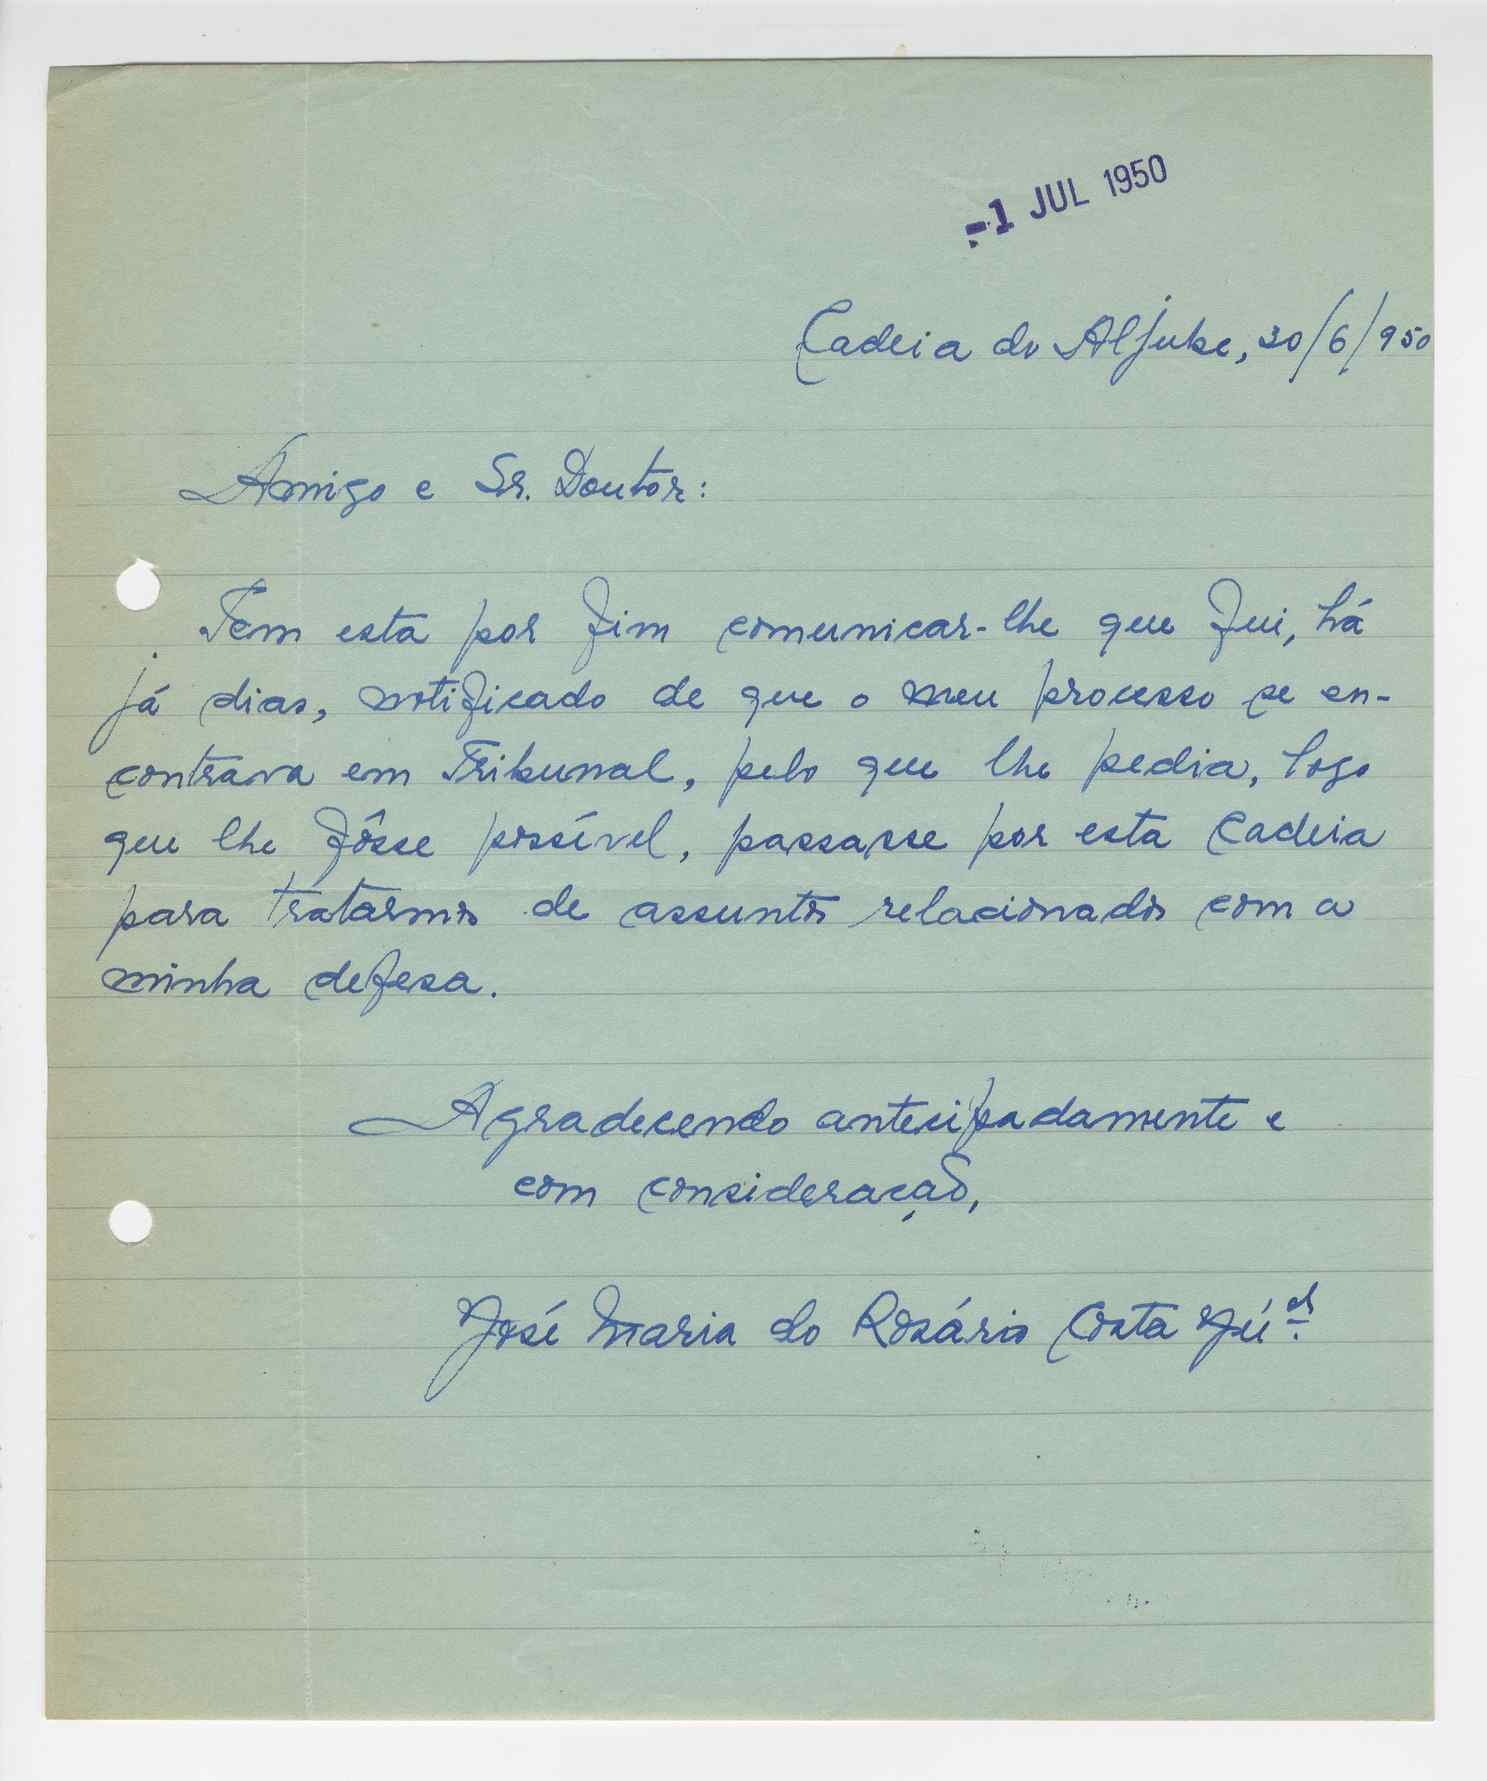 -1 JUL 1950
Cadeia do Aljube, 30/6/950
Amigo e Sr. Doutor:
Tem esta por fim comunicar-lhe que fui, há
já dias, notificado de que o meu processo se en-
contrava em Tribunal, pelo que lhe pedia, logo
que lhe fôsse possível, passasse por esta Cadeia
para tratarmos de assuntos relacionados com a
minha defesa.
Agradecendo antecipadamente e
com consideração,
José Maria do Rosário Costa Jú.or